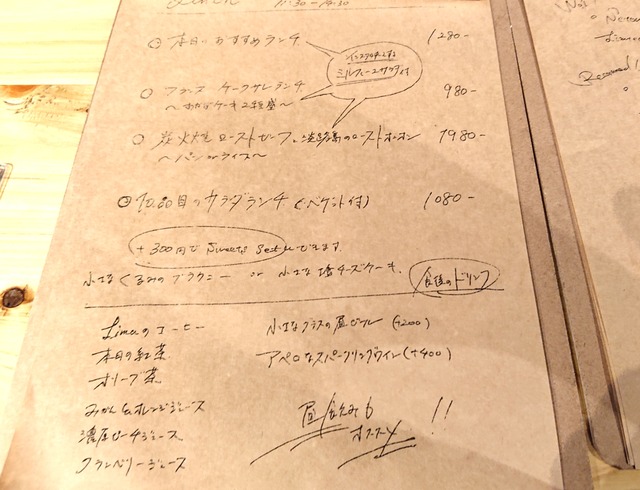 Lunch 11:30-14:30
◎ 本日のおすすめランチ 1280-
インスタ映えする
ミルフィーユサラダ付
○ フランス ケークサレランチ 980-
〜おかずケーキ2種盛〜
○ 炭火焼ローストビーフと淡路島のローストオニオン 1980-
〜パン or ライス〜
◎ 10品目のサラダランチ (バゲット付) 1080-
+300円で Sweets Setにできます.
小さなくるみのブラウニー or 小さな塩チーズケーキ.
食後のドリンク
Limaのコーヒー
本日の紅茶
オリーブ茶
みかん&オレンジジュース
濃厚ピーチジュース
クランベリージュース
小さなグラスの昼ビール (+200)
アペロなスパークリングワイン (+400)
昼飲みも
オススメ !!